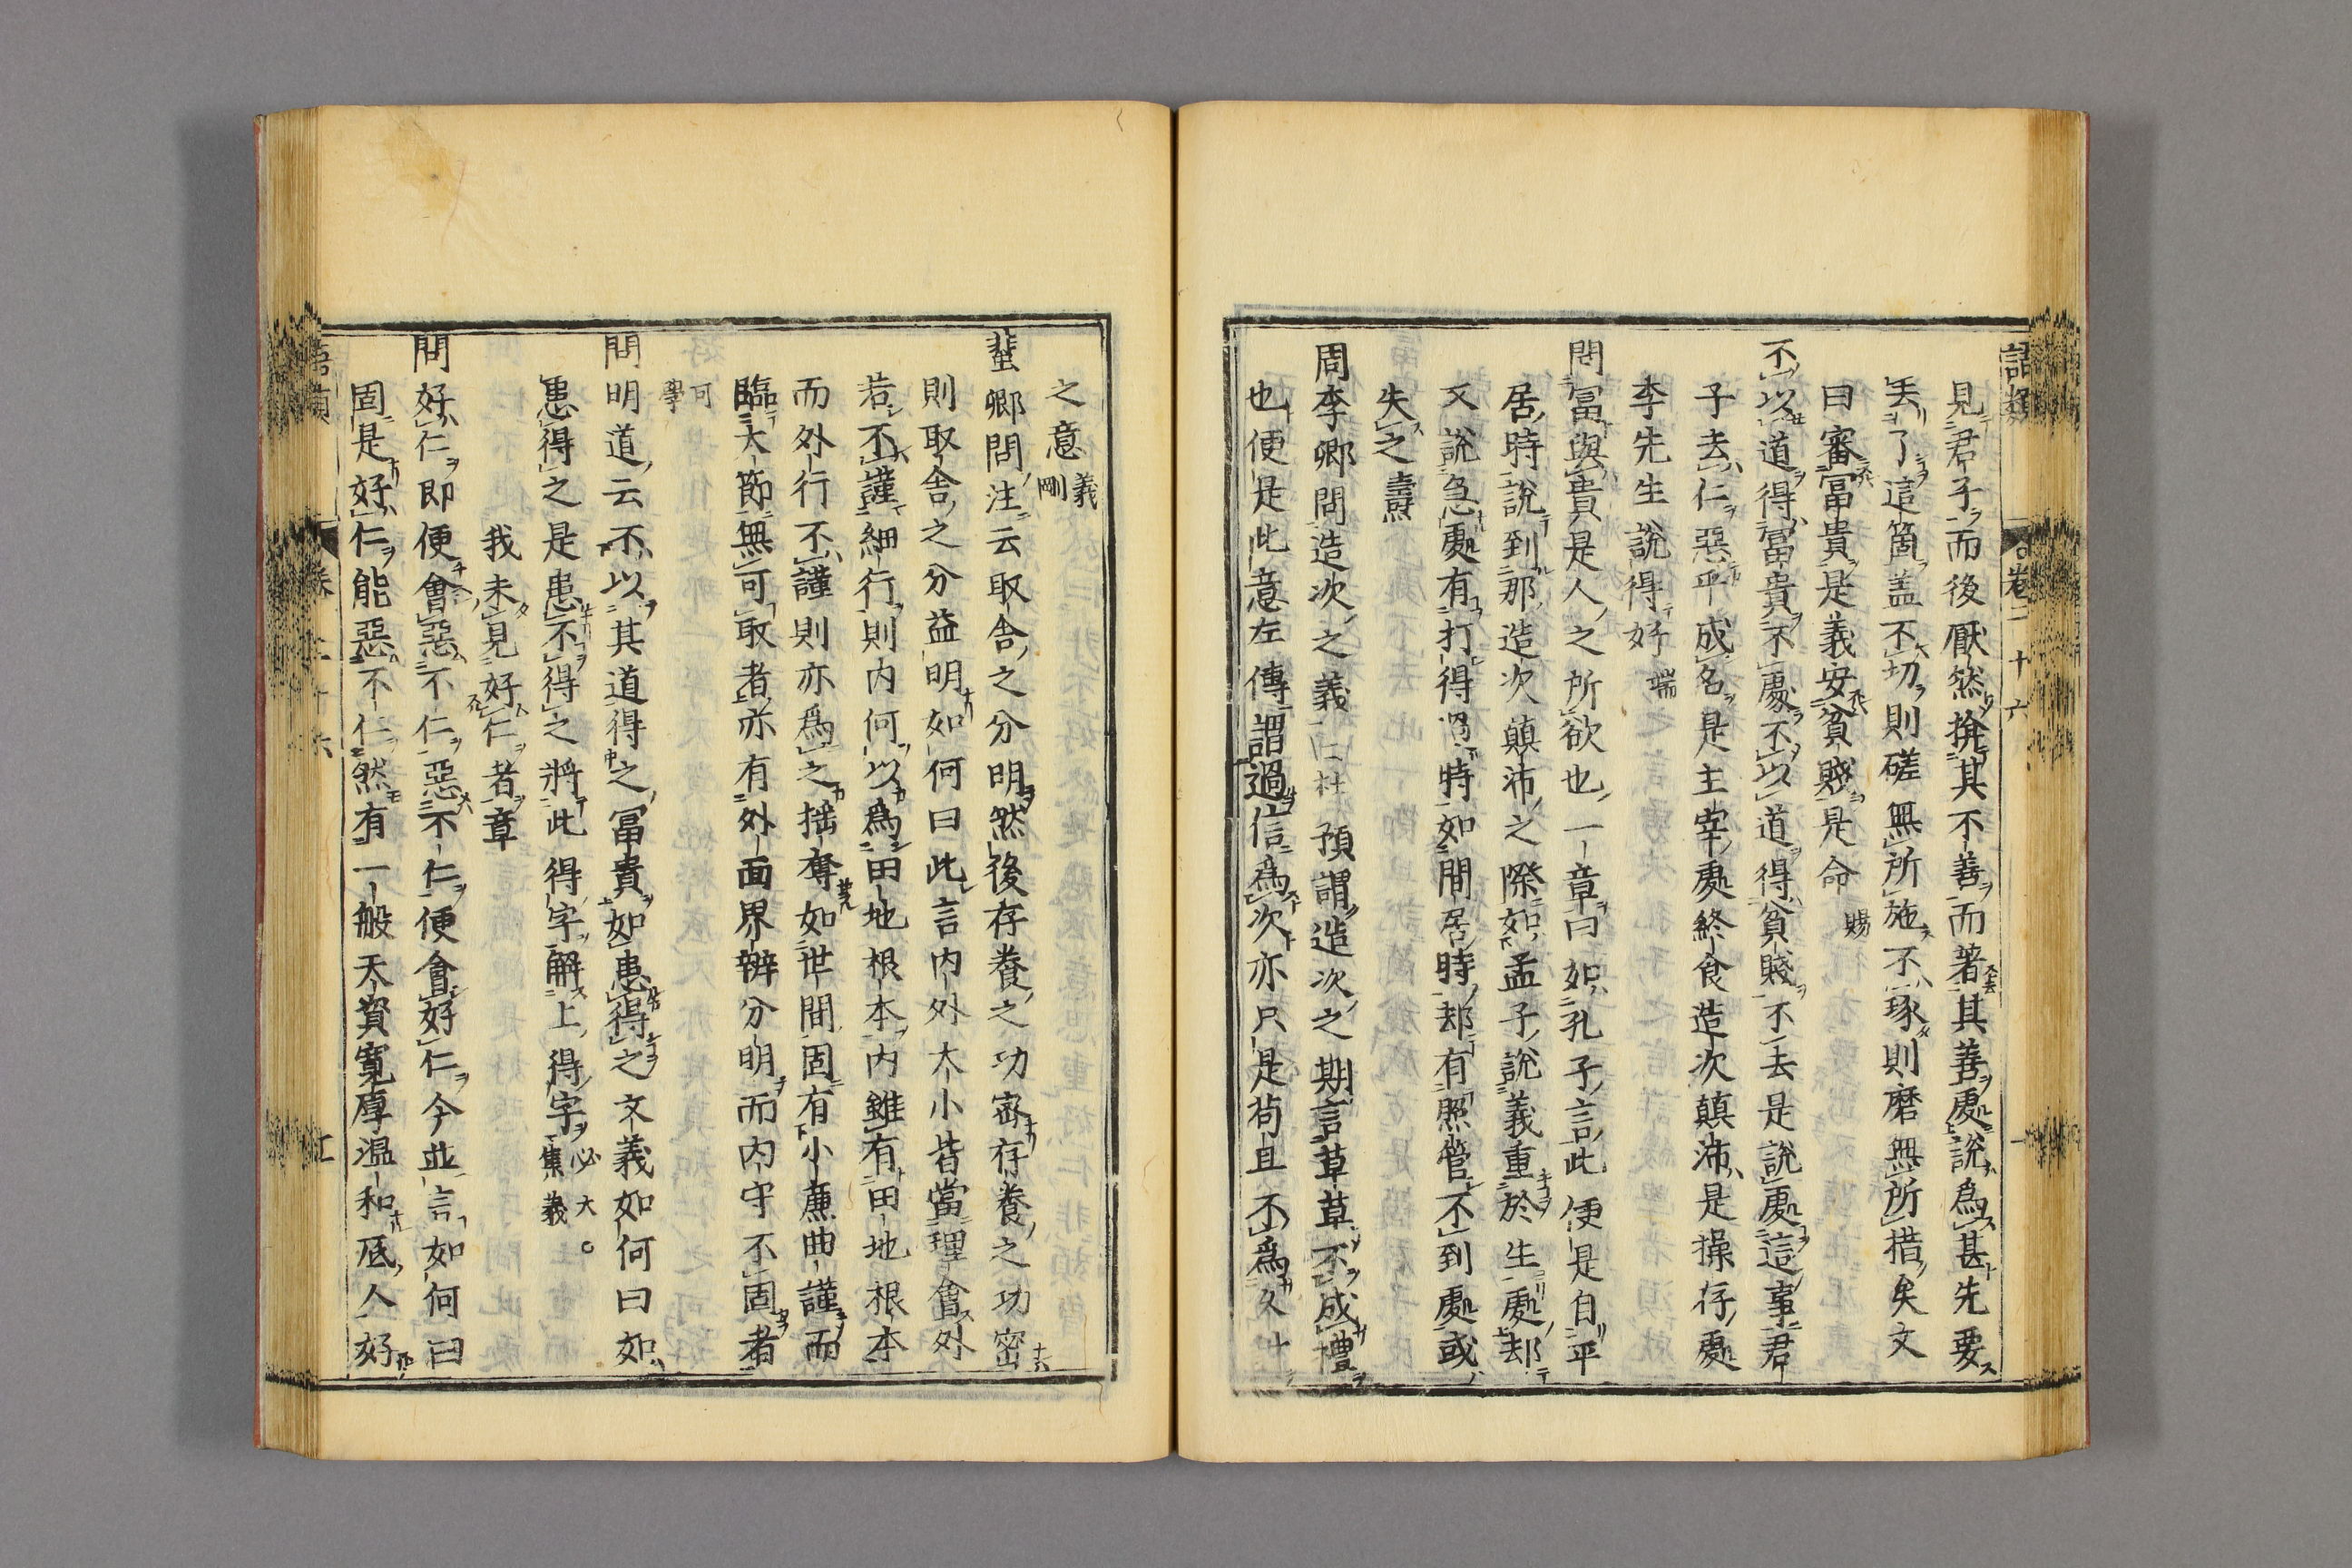 語類 卷二十六
見君子而後厭然揜其不善而著其善處說爲甚先要
丟了這箇盖不切則磋無所施不琢則磨無所措矣文
曰審冨貴是義安貧賤是命 賜
不以道得冨貴不處不以道得貧賤不去是說處這事君
子去仁惡乎成名是主宰處終食造次顛沛是操存處
李先生說得好 端
問冨與貴是人之所欲也一章曰如孔子言此便是自平
居時說到那造次顛沛之際如孟子說義重於生處却
又說急處有打得過時如閒居時却有照管不到處或
失之 燾
周李卿問造次之義曰杜預謂造次之期言草草不成禮
也便是此意左傳謂過信爲次亦只是苟且不爲久計
之意 義剛
蜚卿問注云取舍之分明然後存養之功密存養之功密
則取舍之分益明如何曰此言内外大小皆當理會外
若不謹細行則内何以爲田地根本内雖有田地根本
而外行不謹則亦爲之揺奪如世間固有小廉曲謹而
臨大節無可取者亦有外面界辨分明而内守不固者
可學
問明道云不以其道得之冨貴如患得之文義如何曰如
患得之是患不得之將此得字解上得字 必大。集義
我未見好仁者章
問好仁即便會惡不仁惡不仁便會好仁今並言如何曰
固是好仁能惡不仁然有一般天資寛厚温和底人好